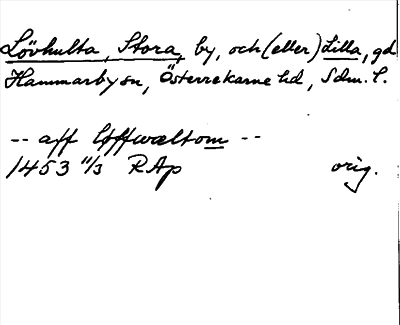 Lövhulta, Stora, by, och (eller) Lilla, gd
Hammarby sn, Österrekarne hd, Sdm. l.
-- aff Löffwaltom --
1453 11/3 RAp orig.